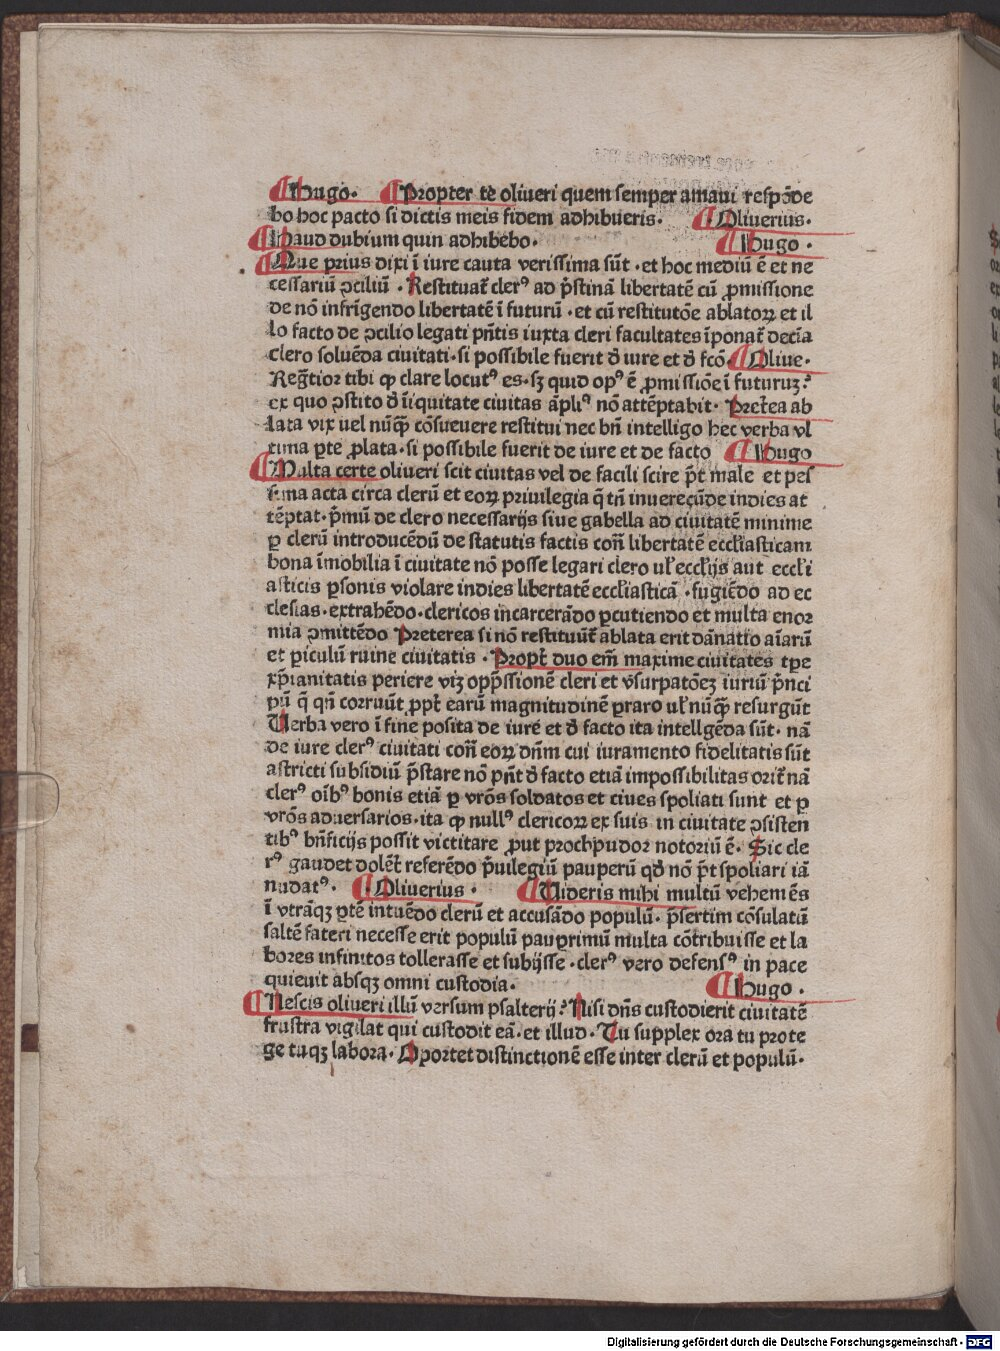 ¶ Hugo. ¶ Propter te oliueri quem semper amaui respōde
bo hoc pacto si dictis meis fidem adhibueris. ¶ Oliuerius.
¶ Haud dubium quin adhibebo. ¶ Hugo.
¶ Que prius dixi ī iure cauta verissima sūt. et hoc mediū ē et ne
cessariū ꝯciliū. Restituat᷑ clerꝰ ad p̄stinā libertatē cū ꝓmissione
de nō infrīgendo libertatē ī futurū. et cū restitutōe ablatoꝝ et il
lo facto de ꝯcilio legati pn̄tis iuxta cleri facultates īponat᷑ decīa
clero soluēda ciuitati. si possibile fuerit đ iure et đ fcō. ¶ Oliue.
Regr̄tior tibi ꝙ clare locutꝰ es. sꝫ quid opꝰ ē ꝓmissiōe ī futuruꝫ?
ex quo ꝯstito đ īiquitate ciuitas āpliꝰ nō attēptabit. Pret̄ea ab
lata vix uel nūꝙ̄ cōsueuere restitui nec bn̄ intelligo hec verba vl
tima ꝑte ꝓlata. si possibile fuerit de iure et de facto ¶ Hugo
¶ Multa certe oliueri scit ciuitas vel de facili scire p̄t male et pes
sima acta circa clerū et eoꝝ priuilegia q̄ tn̄ inuerecūde indies at
tēptat. p̄mū de clero necessarijs siue gabella ad ciuitatē minime
ꝑ clerū introducēdū de statutis factis con̄ libertatē eccl̄iasticam
bona īmobilia ī ciuitate nō posse legari clero ul̄ eccl̄ijs aut eccl̄i
asticis ꝑsonis violare indies libertatē eccl̄iasticā. fugiēdo ad ec
clesias. extrahēdo. clericos incarcerādo ꝑcutiendo et multa enor
mia ꝯmittēdo Preterea si nō restituūt᷑ ablata erit dānatio aīarū
et ꝑiculū ruine ciuitatis. Propt̄ duo em̄ maxime ciuitates tꝑe
xp̄ianitatis periere viꝫ opp̄ssionē cleri et vsurpatōeꝫ iuriū p̄nci
pū q̄ qn̄ corruūt ꝓpt̄ earū magnitudinē ꝑraro ul̄ nūꝙ̄ resurgūt
Verba vero ī fine posita de iure et đ facto ita intelligēda sūt. nā
de iure clerꝰ ciuitati con̄ eoꝝ dn̄m cui iuramento fidelitatis sūt
astricti subsidiū p̄stare nō pn̄t đ facto etiā impossibilitas orit᷑ nā
clerꝰ oībꝰ bonis etiā ꝑ vrōs soldatos et ciues spoliati sunt et ꝑ
vrōs aduersarios. ita ꝙ nullꝰ clericoꝝ ex suis in ciuitate ꝯsisten
tibꝰ bn̄ficijs possit victitare ꝓut prochpudor notoriū ē. Sic cle
rꝰ gaudet dolēt᷑ referēdo p̄uilegiū pauperū qđ nō p̄t spoliari iā
nudatꝰ. ¶ Oliuerius. ¶ Videris mihi multū vehemēs
ī vtrāqꝫ ꝑtē intuēdo clerū et accusādo populū. p̄sertim cōsulatū
saltē fateri necesse erit populū pauprimū multa cōtribuisse et la
bores infinitos tollerasse et subijsse. clerꝰ vero defensꝰ in pace
quieuit absqꝫ omni custodia. ¶ Hugo.
¶ Nescis oliueri illū versum psalterij? Nisi dn̄s custodierit ciuitatē
frustra vigilat qui custodit eā. et illud. Tu supplex ora tu prote
ge tuqꝫ labora. Oportet distinctionē esse inter clerū et populū.
Digitalisierung gefördert durch die Deutsche Forschungsgemeinschaft - DFG